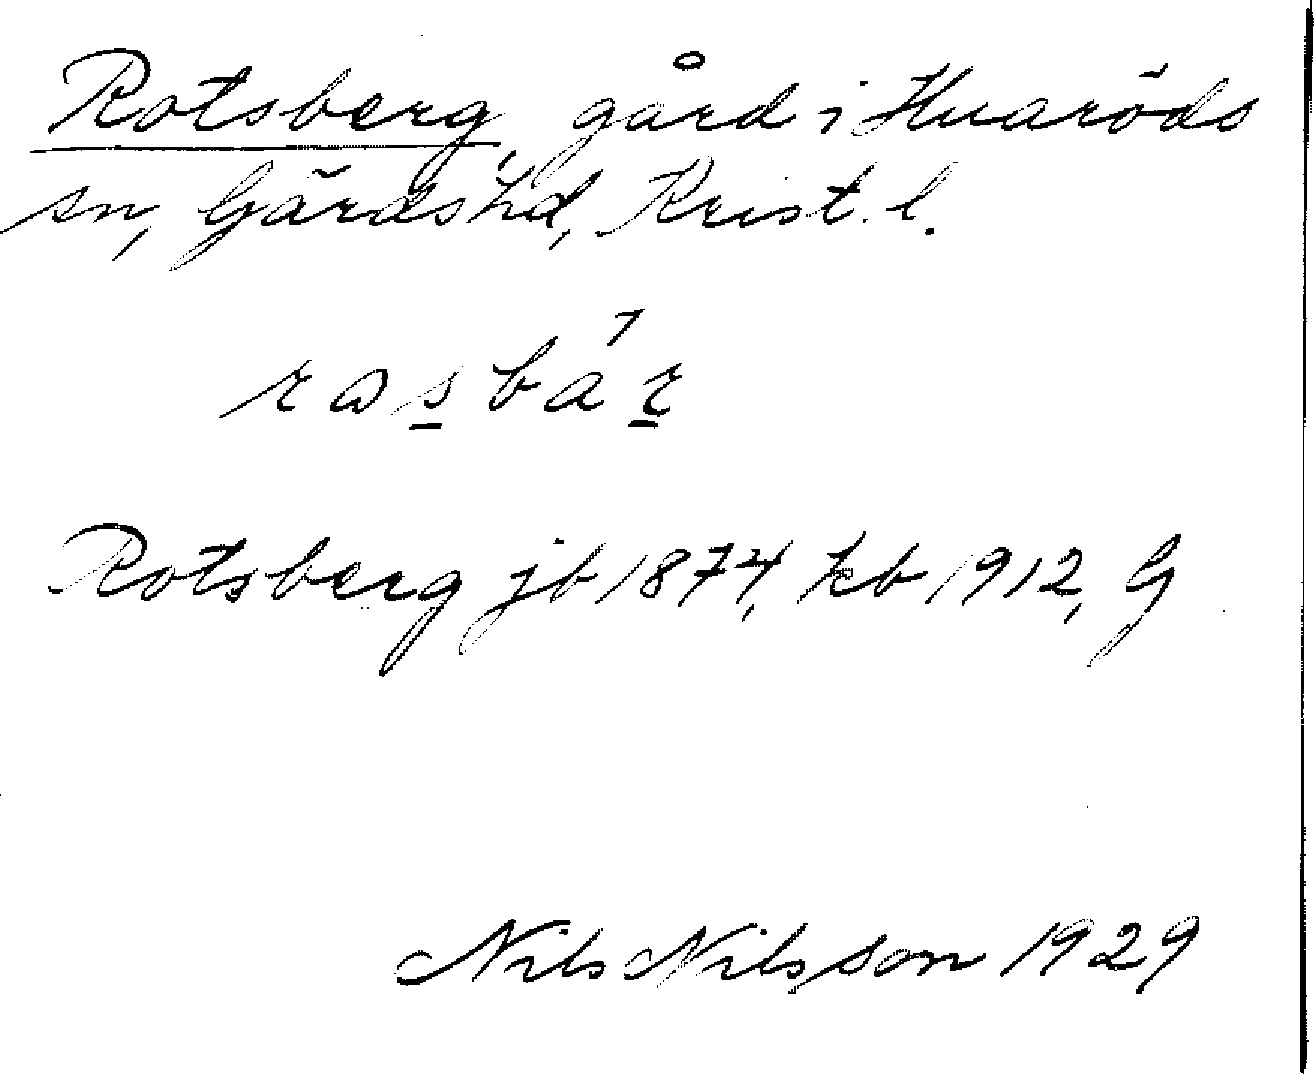 Rotsberg, gård i Huaröds
sn, Gärds hd, Krist. l.
rasbár
Rotsberg jb 1874, kb 1912, G
Nils Nilsson 1929